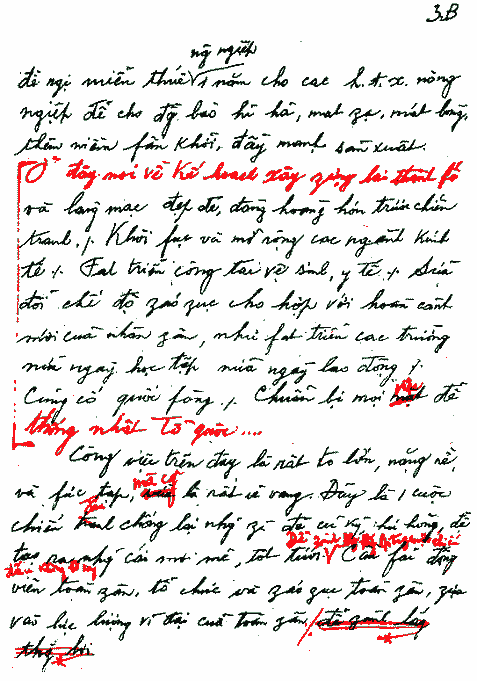 3.B
ng ngiệp
đề ngị miễn thuế 1 năm cho các h.t.x. nông
ngiệp để cho đg bào hỉ hả, mát zạ, mát lòng,
thêm niềm fấn khởi, đẩy mạnh sản xuất.
đây nói về kế hoạch xây zựng lại thành fố
và làng mạc đẹp đẽ, đàng hoàng hơn trước chiến
tranh./. Khôi fục và mở rộng các ngành kinh
tế ./. Fát triển công tác vệ sinh, y tế ./. Sửa
đổi chế độ záo zục cho hợp với hoàn cảnh
mới của nhân zân, như fát triển các trường
nửa ngày học tập nửa ngày lao động ./.
Củng cố quốc fòng ./. Chuẩn bị mọi mặt để
thống nhất Tổ quốc ....
Công việc trên đây là rất to lớn, nặng nề,
mà cũ
và fức tạp, là rất vẻ vang. Đây là 1 cuộc
đấu
chiến tranh chống lại nhg gì đã cũ kỹ, hư hỏng, để
tạo ra nhg cái mới mẻ, tốt tươi. Cần fải động
viên toàn zân, tổ chức và záo zục toàn zân, zựa
vào lực lượng vĩ đại của toàn zân, để zành lấy
thg lợi